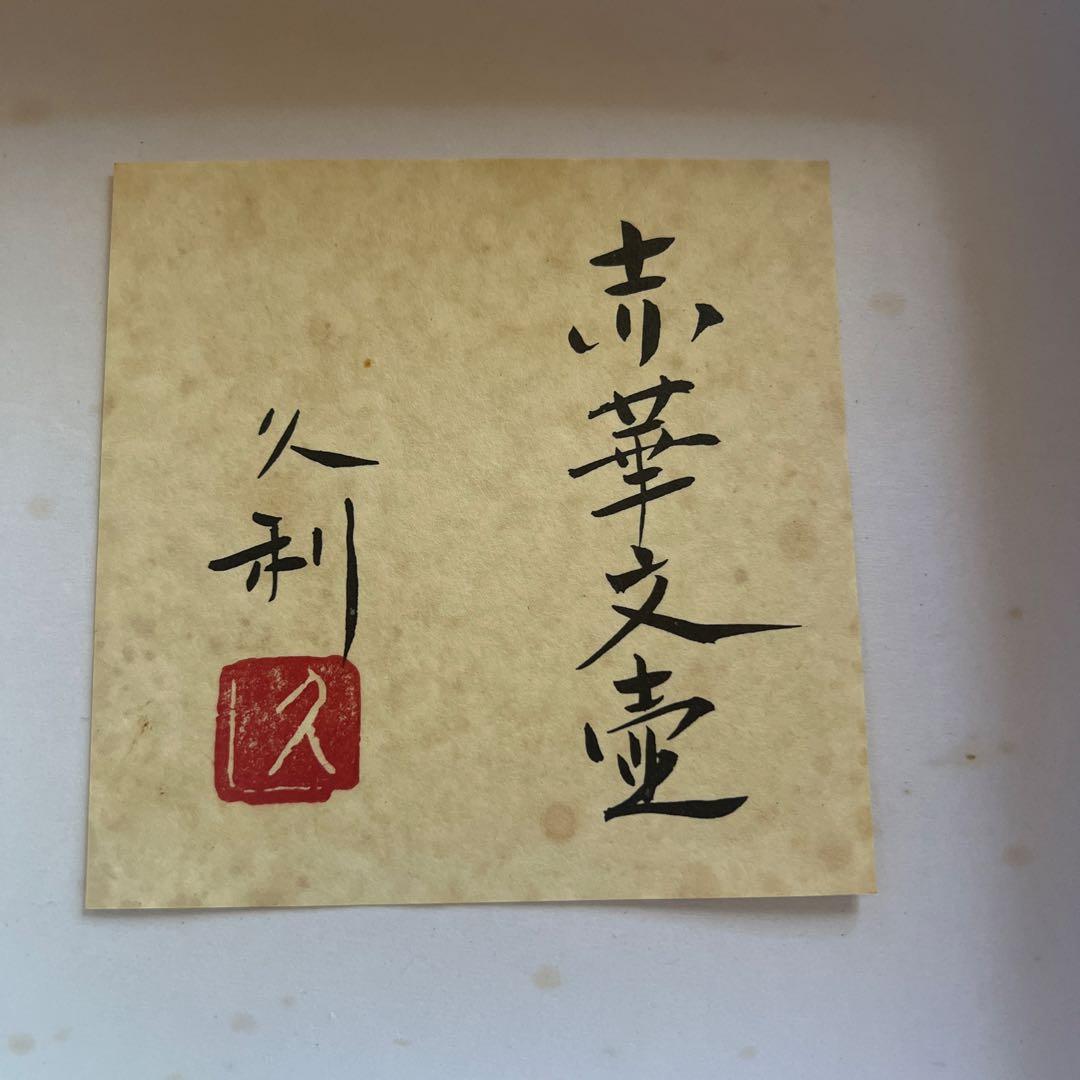 赤華文壷
久利
久